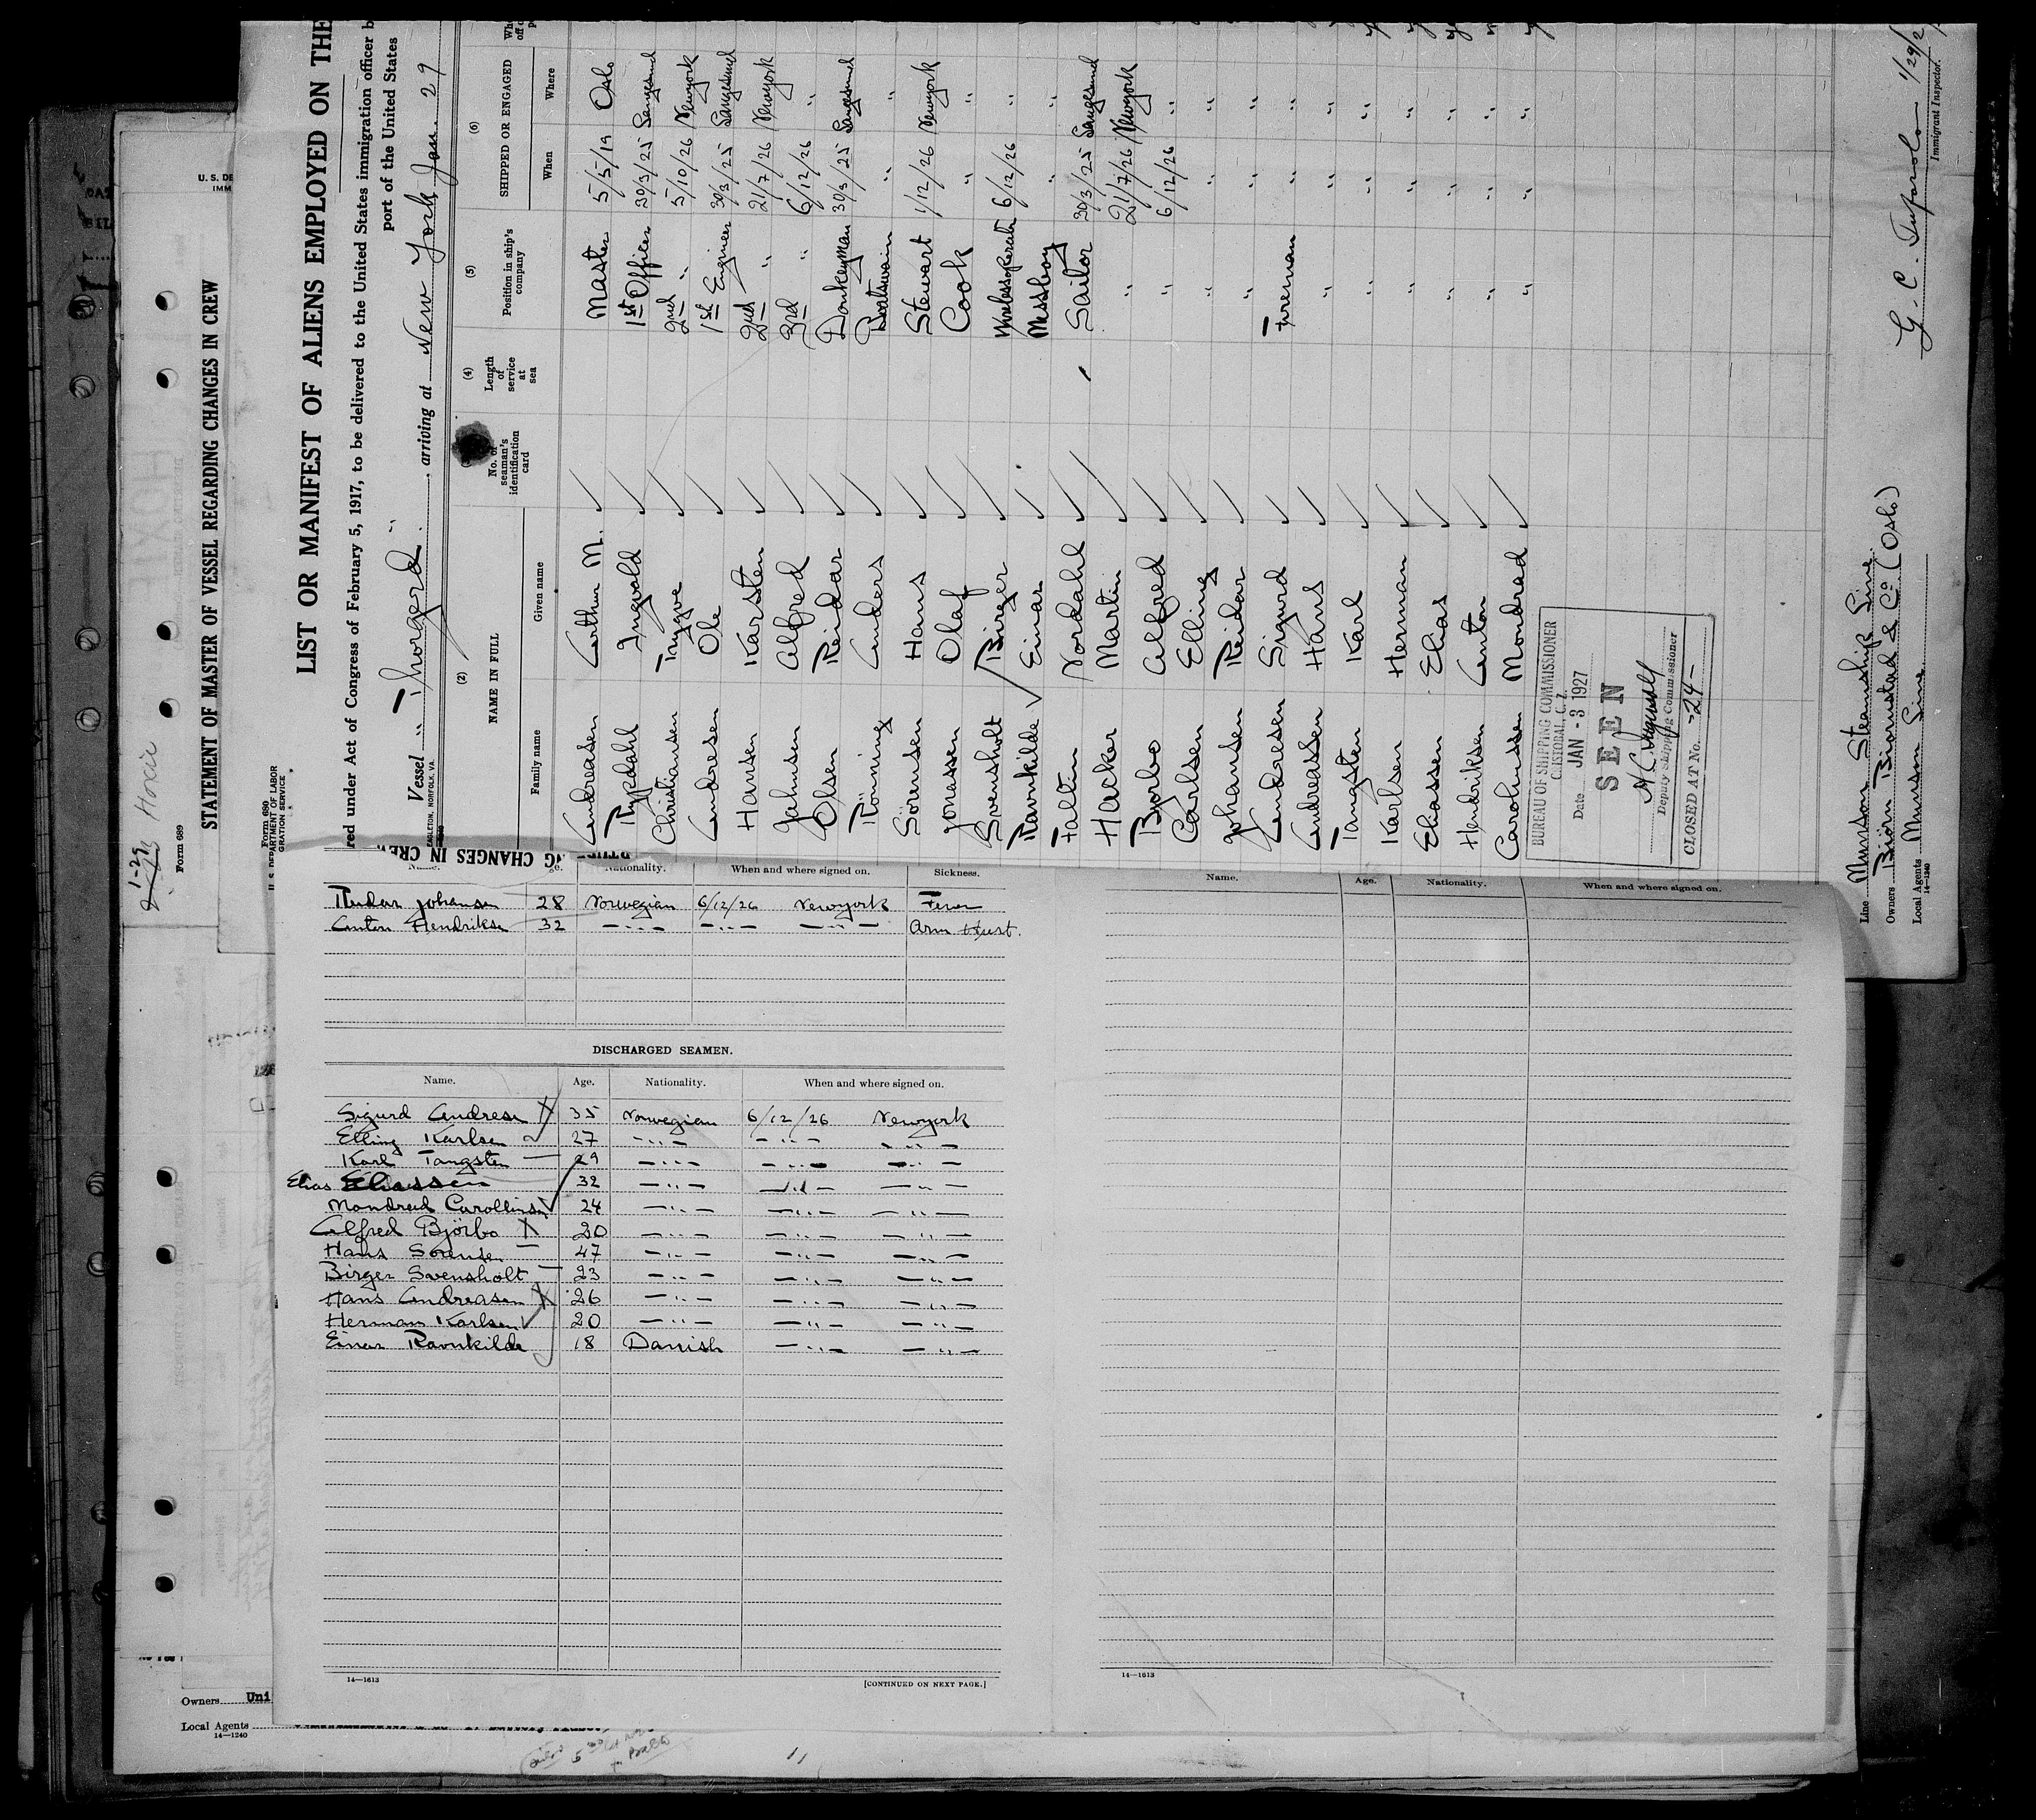 LIST OR MANIFEST OF ALIENS EMPLOYED ON THE
red under Act of Congress of February 5, 1917, to be delivered to the United States immigration officer b
port of the United States
Vessel "Thorgerd" arriving at New York Jan. 29
EAGLETON, NORFOLK, VA.
(2) (4) (5) (6)
NAME IN FULL No. of seaman's identification card Length of service at sea Position in ship's company SHIPPED OR ENGAGED
Family name Given name When Where
Andreasen Arthur M. Master 5/5/19 Oslo
Rypdahl Ingvald 1st Officer 30/3/25 Langesund
Christiansen Trygve 2nd " 5/10/26 Newyork
Andresen Ole 1st Engineer 30/3/25 Langesund
Hansen Karsten 2nd " 21/7/26 Newyork
Jahnsen Alfred 3rd " 6/12/26 "
Olsen Reidar Donkeyman 30/3/25 Langesund
Rönning Anders Boatswain " "
Sörensen Hans Stewart 1/12/26 Newyork
Jonassen Olaf Cook " "
Svensholt Birger Wirelessoperatör 6/12/26 "
Ravnkilde Einar Messboy " "
Faltin Nordahl Sailor 30/3/25 Langesund
Hacker Martin " 21/7/26 Newyork
Bjorbo Alfred " 6/12/26 "
Carlsen Elling " " "
Johansen Reidar " " "
Andresen Sigurd Fireman " "
Andreassen Hans " " "
Tangsten Karl " " "
Karlsen Herman " " "
Eliassen Elias " " "
Hendriksen Anton " " "
Carolinssen Mondred " " "
BUREAU OF SHIPPING COMMISSIONER
CRISTOBAL, C. Z.
Date JAN - 3 1927
SEEN
Deputy Shipping Commissioner
CLOSED AT No. -24-
Line Munson Steamship Line
Owners Björn Biornstad & Co. (Oslo)
Local Agents Munson Line
14—1240
G. C. 1/29/2
Immigrant Inspector.
U. S. DE
IMM
STATEMENT OF MASTER OF VESSEL REGARDING CHANGES IN CREW
Form 689
1-29
Hoxie
Form 680
U. S. DEPARTMENT OF LABOR
GRATION SERVICE
NG CHANGES IN CREW
Nationality. When and where signed on. Sickness.
Reidar Johansen 28 Norwegian 6/12/26 Newyork Fever
Anton Hendriksen 32 — " — — " — — " — Arm Hurt.
DISCHARGED SEAMEN.
Name. Age. Nationality. When and where signed on.
Sigurd Andresen X 35 Norwegian 6/12/26 Newyork
Elling Karlsen 27 — " — — " — — " —
Karl Tangsten 29 — " — — " — — " —
Elias Eliassen 32 — " — — " — — " —
Mondred Carollinsen 24 — " — — " — — " —
Alfred Bjôrbo X 20 — " — — " — — " —
Hans Sörensen 47 — " — — " — — " —
Birger Svensholt 23 — " — — " — — " —
Hans Andreasen X 26 — " — — " — — " —
Herman Karlsen 20 — " — — " — — " —
Einar Ravnkilde 18 Danish — " — — " —
14—1613
[CONTINUED ON NEXT PAGE.]
Name. Age. Nationality. When and where signed on.
14—1613
Owners Uni
Local Agents
14—1240